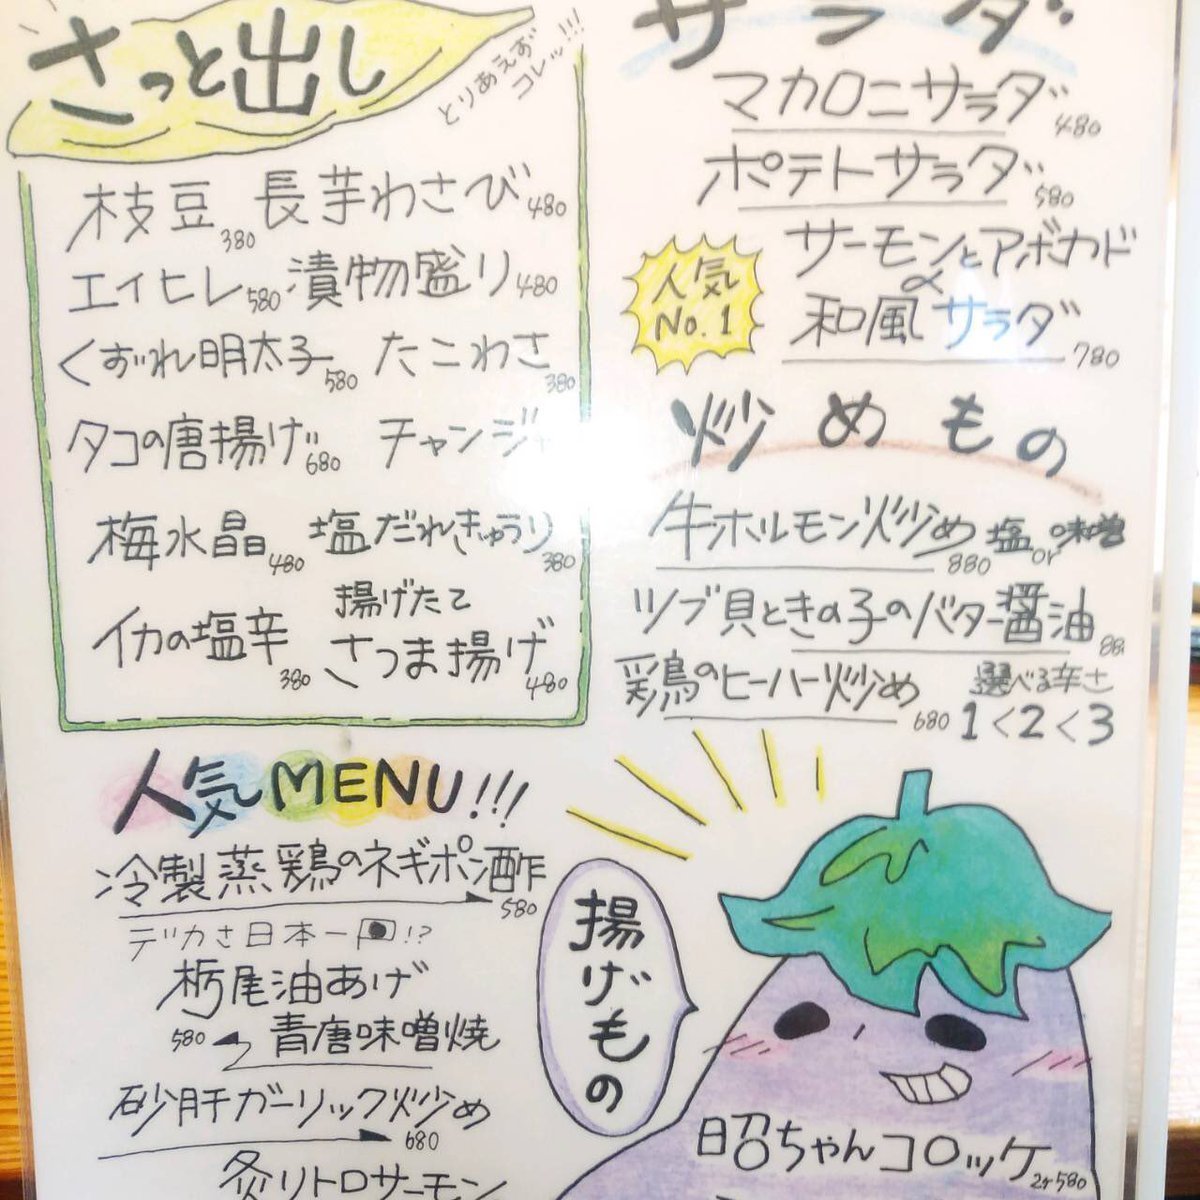 さっと出し
とりあえず
コレッ!!!
枝豆380 長芋わさび480
エイヒレ580 漬物盛り480
くずれ明太子580 たこわさ380
タコの唐揚げ680 チャンジャ
梅水晶480 塩だれきゅうり380
イカの塩辛380 揚げたて
さつま揚げ480
人気MENU!!!
冷製蒸鶏のネギポン酢
580
デカさ日本一!?
栃尾油あげ
580 青唐味噌焼
砂肝ガーリック炒め
680
炙りトロサーモン
サラダ
マカロニサラダ480
ポテトサラダ580
人気
No.1
サーモンとアボカド
和風サラダ780
炒めもの
牛ホルモン炒め 塩or味噌
880
ツブ貝ときの子のバター醤油
鶏のヒーハー炒め680
選べる辛さ
1<2<3
揚げもの
昭ちゃんコロッケ2ケ580